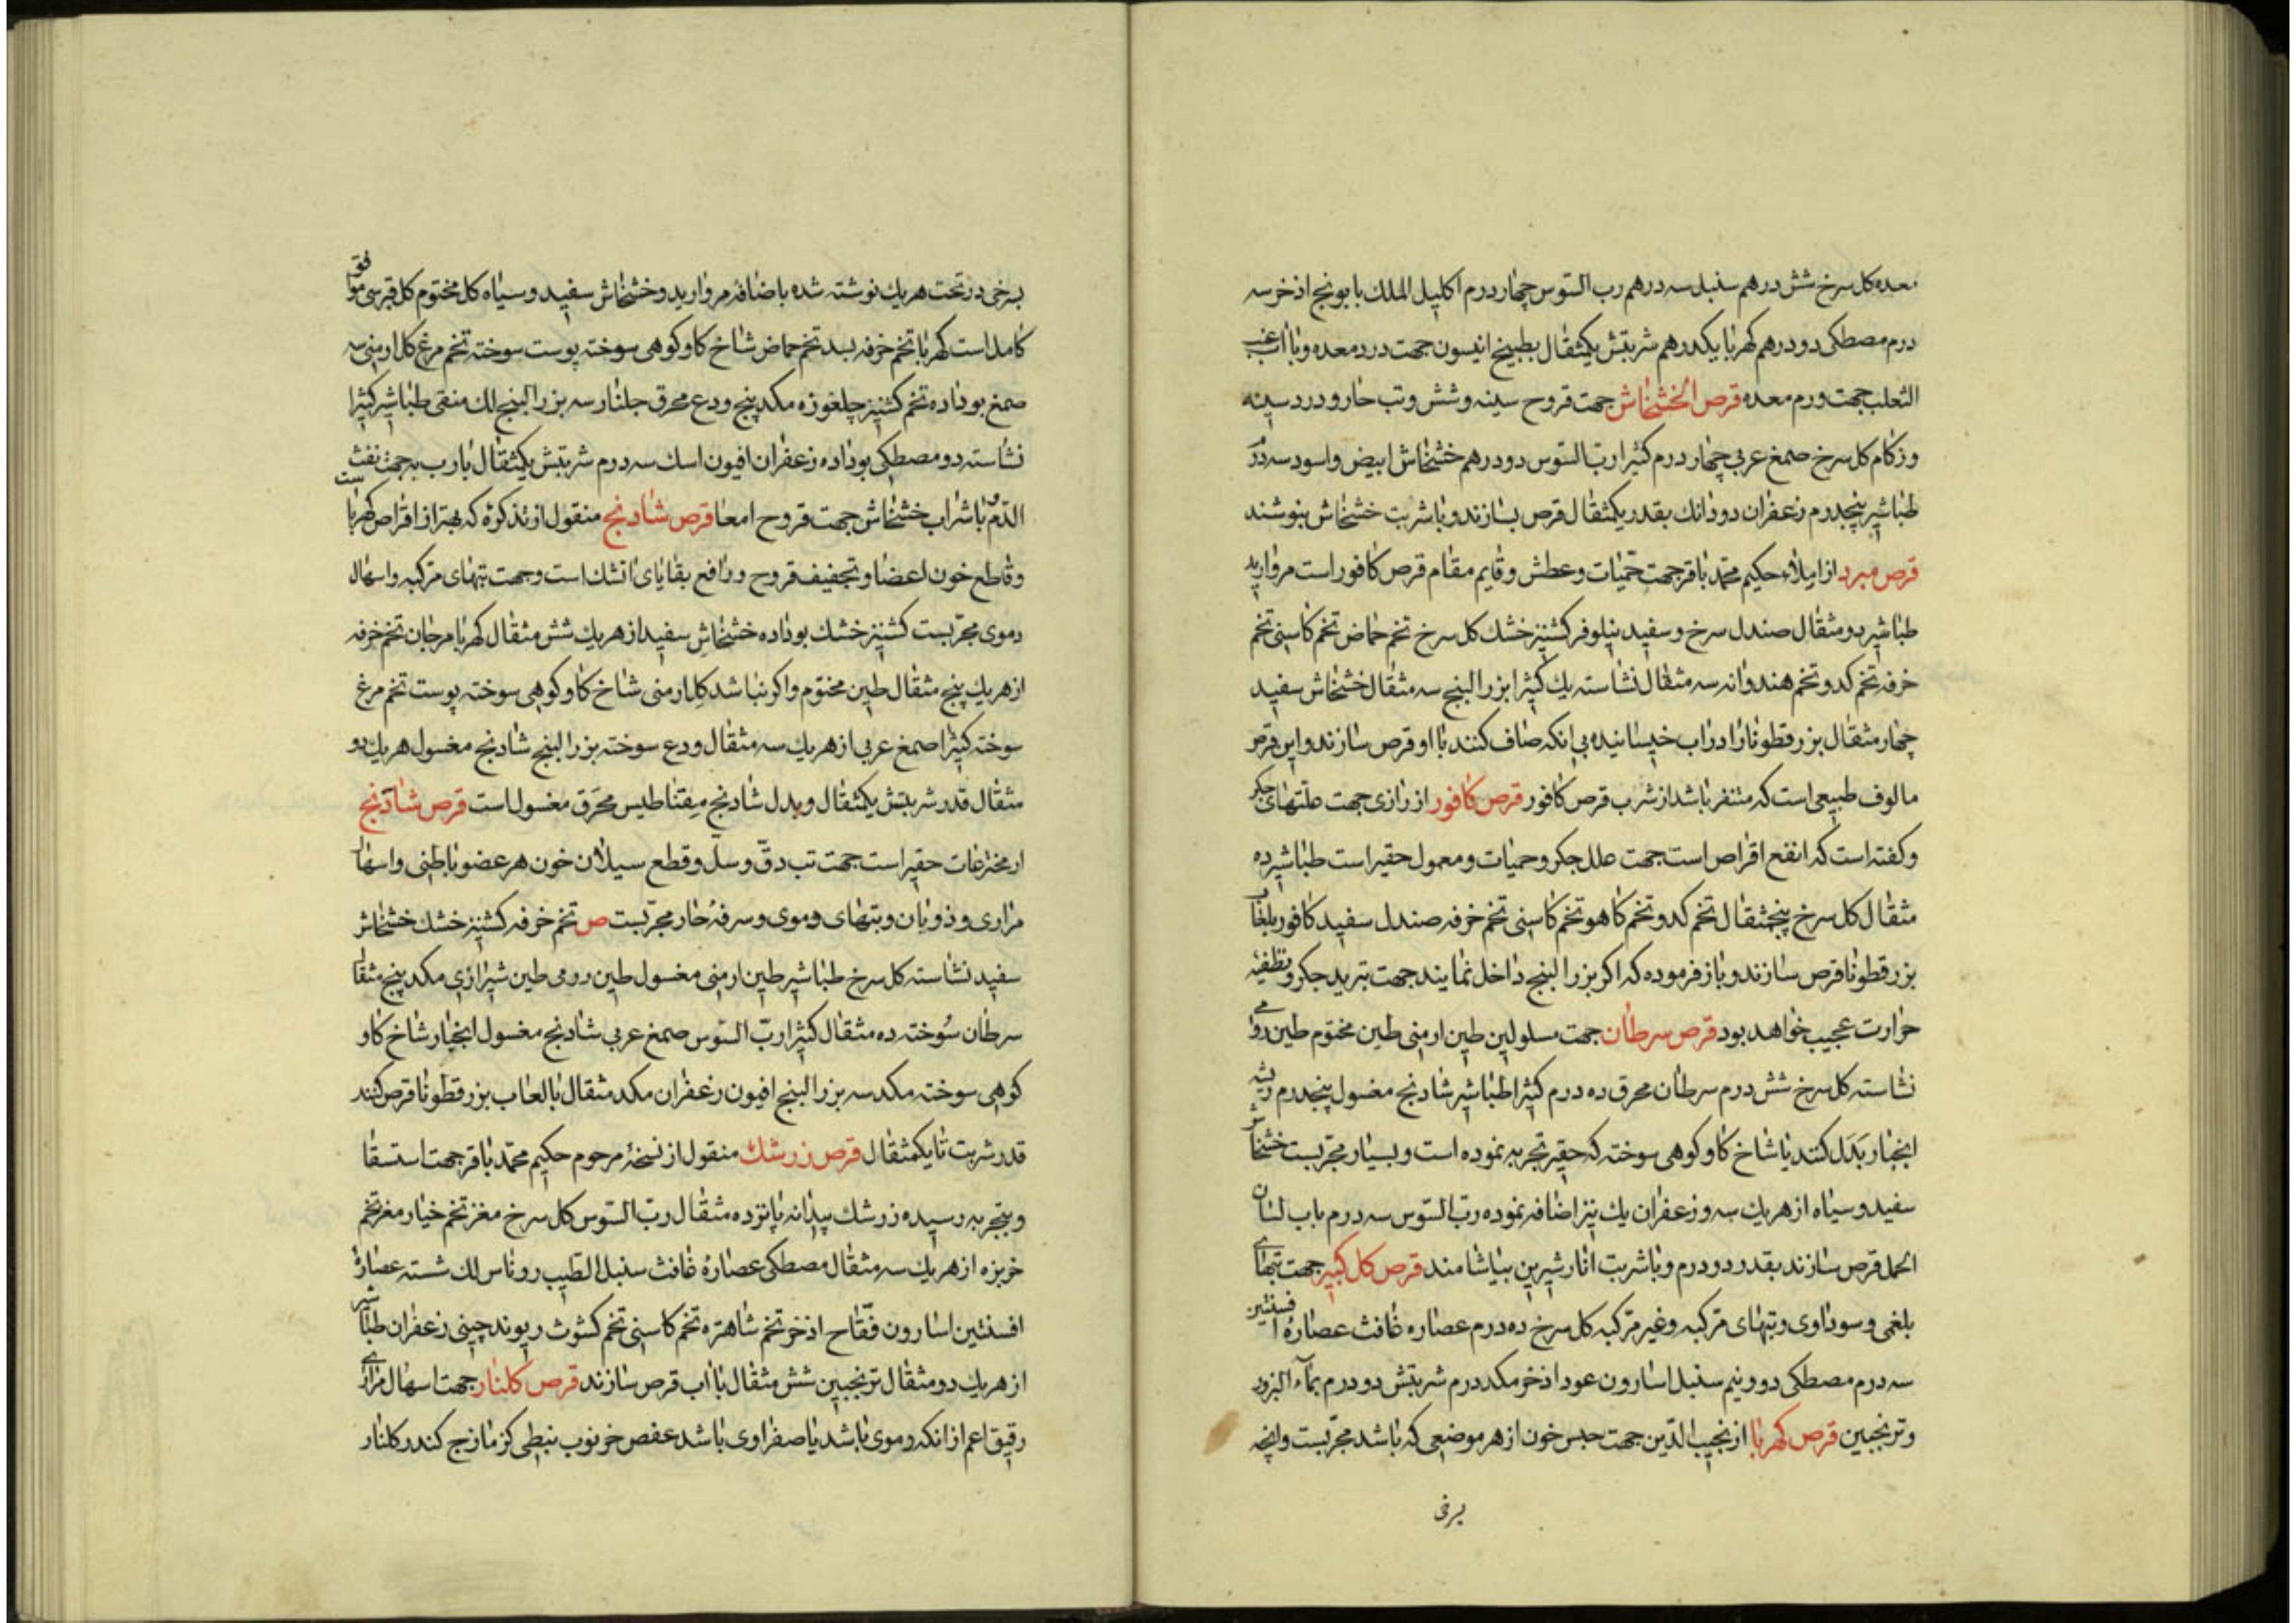 معده کل سرخ شش درهم سنبل سه درهم رب السوس چهار درم اکلیل الملک بابونج اذخر سه
درم مصطکی دو درهم کهربا یکدرهم شربتش یکمثقال بطبیخ انیسون جهت درد معده و با آب عنب
الثعلب جهت ورم معده قرص الخشخاش جهت قروح سینه و شش و تب حار و درد سینه
و زکام کل سرخ صمغ عربی چهار درم کثیرا رب السوس دو درهم خشخاش ابیض و اسود سه درم
طباشیر پنجدرم زعفران دو دانک بقدر یکمثقال قرص بسازند و با شربت خشخاش بنوشند
قرص مبرد از املاء حکیم محمد باقر جهت حمیات و عطش و قایم مقام قرص کافور است مروارید
طباشیر دو مثقال صندل سرخ و سفید نیلوفر کشنیز خشک کل سرخ تخم حماض تخم کاسنی تخم
خرفه تخم کدو تخم هندوانه سه مثقال نشاسته یک کثیرا بزر البنج سه مثقال خشخاش سفید
چهار مثقال بزر قطونا را در اب خیسانیده بی انکه صاف کنند با او قرص سازند و این قرص
مالوف طبیعی است که متنفر باشد از شرب قرص کافور قرص کافور از رازی جهت علتهای جکر
و کفته است که انفع اقراص است جهت علل جکر و حمیات و معمول حقیر است طباشیر ده
مثقال کل سرخ پنجمثقال تخم کدو تخم کاهو تخم کاسنی تخم خرفه صندل سفید کافور بلعاب
بزر قطونا قرص سازند و باز فرموده که اکر بزر البنج داخل نمایند جهت تبرید جکر و تطفیه
حرارت عجیب خواهد بود قرص سرطان جهت مسلولین طین ارمنی طین مختوم طین رومی
نشاسته کل سرخ شش درم سرطان محرق ده درم کثیرا طباشیر شادنج مغسول پنجدرم ریشه
انجبار بدل کنند یا شاخ کاو کوهی سوخته که حقیر تجربه نموده است و بسیار مجربست خشخاش
سفید و سیاه از هر یک سه و زعفران یک نیز اضافه نموده رب السوس سه درم باب لسان
الحمل قرص سازند بقدر دو درم و با شربت انار شیرین بیاشامند قرص کل کبیر جهت تبهای
بلغمی و سوداوی و تبهای مرکبه و غیر مرکبه کل سرخ ده درم عصاره غافث عصارهٔ افسنتین
سه درم مصطکی دو و نیم سنبل اسارون عود اذخر مکد درم شربتش دو درم بماء البزور
و ترنجبین قرص کهربا از نجیب الدین جهت حبس خون از هر موضعی که باشد مجربست و انچه
برخی
برخی در تحت هر یک نوشته شده با ضافه مروارید و خشخاش سفید و سیاه کل مختوم کل قبرسی موافق
کامل است کهربا تخم خرفه بسد تخم حماض شاخ کاو کوهی سوخته پوست سوخته تخم مرغ کل ارمنی سه
صمغ بوداده تخم کشنیز چلغوزه مکد پنج ودع محرق جلنار سه بزر البنج لک منقی طباشیر کثیرا
نشاسته دو مصطکی بوداده زعفران افیون اسک سه درم شربتش یکمثقال با رب به جهت نفث
الدم و با شراب خشخاش جهت قروح امعا قرص شادنج منقول از تذکره که بهتر از اقراص کهربا ست
و قاطع خون اعضا و تجفیف قروح و رافع بقایای اتشک است و جهت تبهای مرکبه و اسهال
دموی مجربست کشنیز خشک بوداده خشخاش سفید از هر یک شش مثقال کهربا مرجان تخم خرفه
از هر یک پنج مثقال طین مختوم و اکر نباشد کل ارمنی شاخ کاو کوهی سوخته پوست تخم مرغ
سوخته کثیرا صمغ عربی از هر یک سه مثقال ودع سوخته بزر البنج شادنج مغسول هر یک دو
مثقال قدر شربتش یکمثقال و بدل شادنج مقناطیس محرق مغسول است قرص شادنج
از مخترعات حقیر است جهت تب دق و سل و قطع سیلان خون هر عضو باطنی و اسهال
مراری و ذوبان و تبهای دموی و سرفهٔ حار مجربست ص تخم خرفه کشنیز خشک خشخاش
سفید نشاسته کل سرخ طباشیر طین ارمنی مغسول طین رومی طین شیرازی مکد پنج مثقال
سرطان سوخته ده مثقال کثیرا رب السوس صمغ عربی شادنج مغسول انجبار شاخ کاو
کوهی سوخته مکد سه بزر البنج افیون زعفران مکد مثقال با لعاب بزر قطونا قرص کنند
قدر شربت تا یکمثقال قرص زرشک منقول از نسخهٔ مرحوم حکیم محمد باقر جهت استسقا
و بتجربه رسیده زرشک بیدانه پانزده مثقال رب السوس کل سرخ مغز تخم خیار مغز تخم
خربزه از هر یک سه مثقال مصطکی عصارهٔ غافث سنبل الطیب روناس لک شسته عصارهٔ
افسنتین اسارون فقاح اذخر تخم شاهتره تخم کاسنی تخم کشوث ریوند چینی زعفران طباشیر
از هر یک دو مثقال ترنجبین شش مثقال با آب قرص سازند قرص کلنار جهت اسهال مراری
رقیق اعم از انکه دموی باشد یا صفراوی باشد عفص خرنوب نبطی کزمازج کندر کلنار